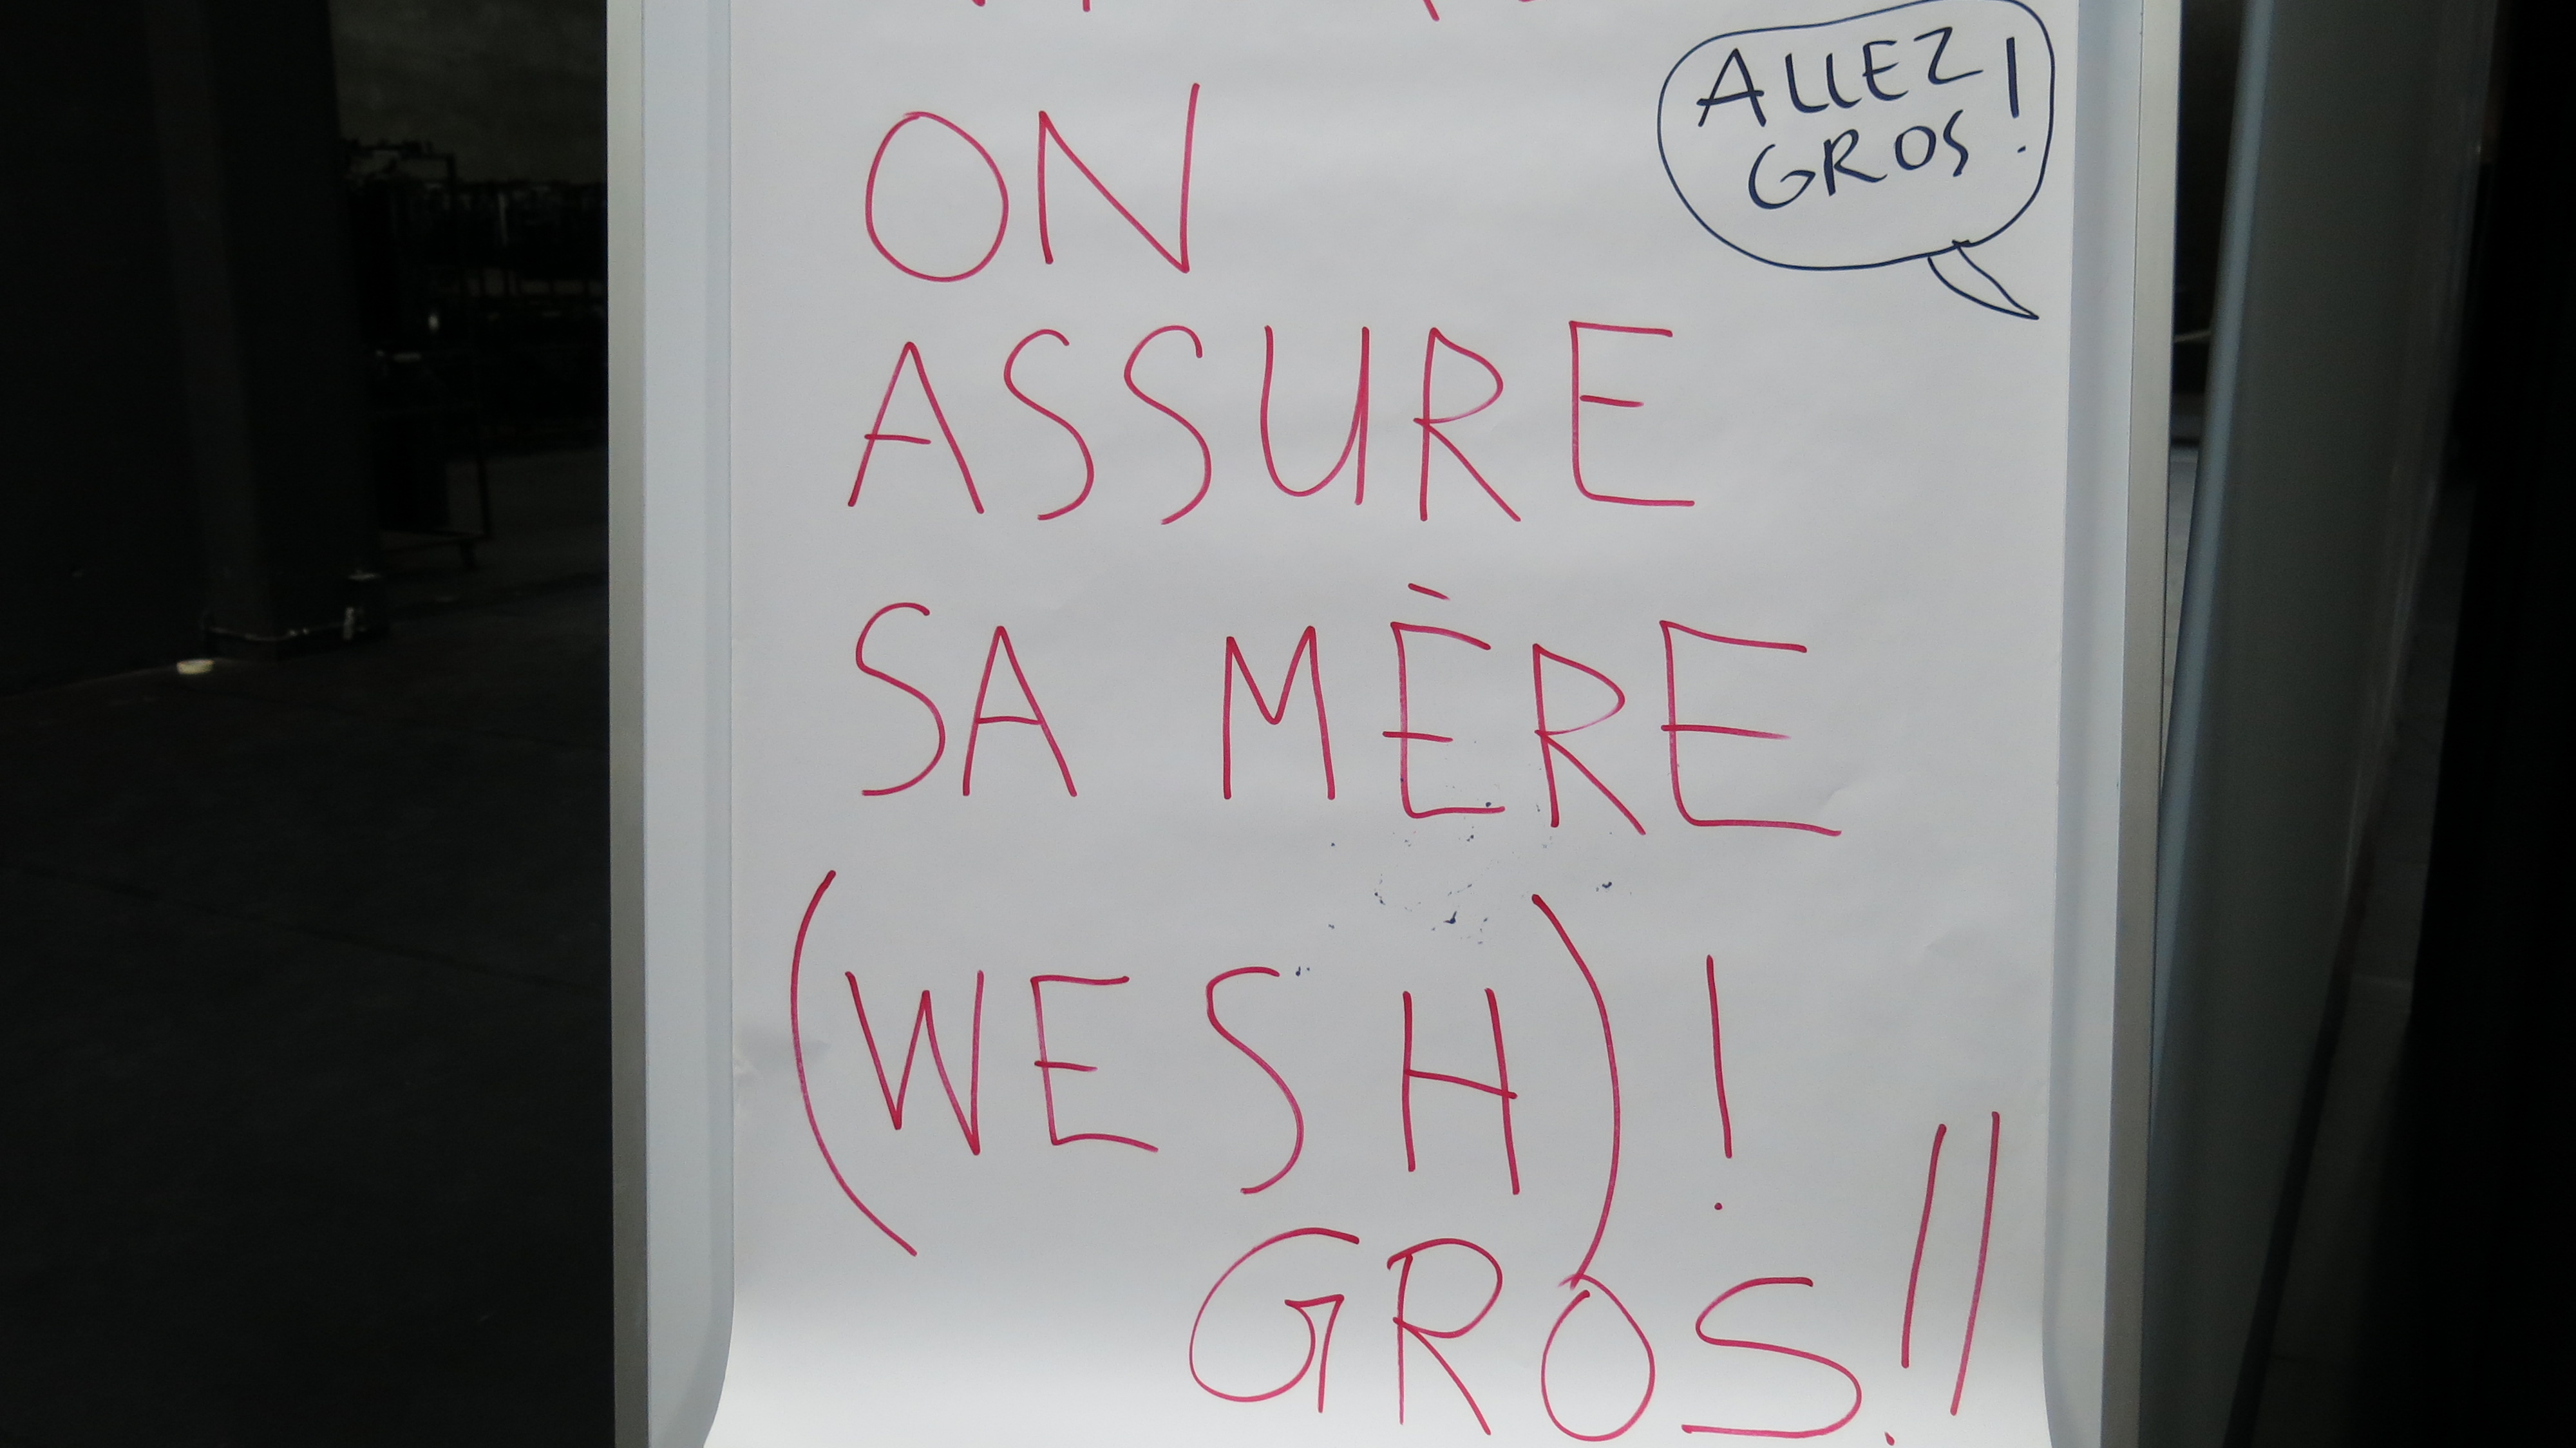 ALLEZ
GROS !
ON
ASSURE
SA MÈRE
(WESH) !
GROS !!